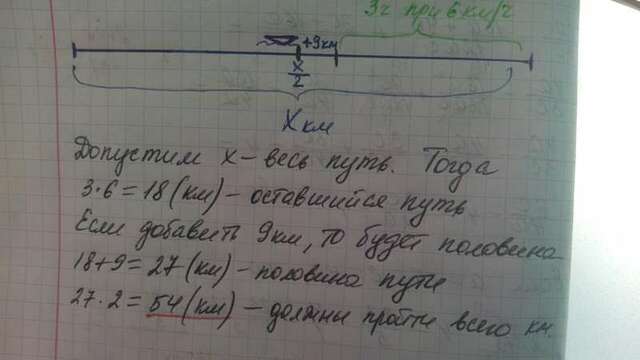 3ч при 6 км/ч
+9км
x
2
X км
Допустим x - весь путь. Тогда
3·6 = 18 (км) - оставшийся путь
Если добавить 9км, то будет половина
18+9 = 27 (км) - половина пути
27·2 = 54 (км) - должны пройти всего км.